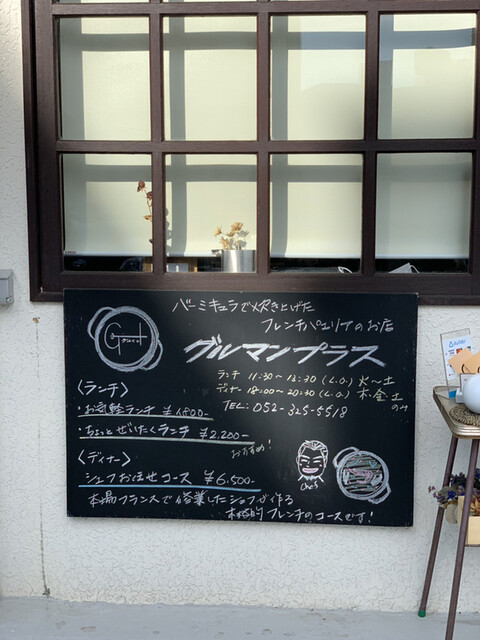 バーミキュラで炊きあげた
フレンチパエリアのお店
グルマンプラス
ランチ 11:30~13:30(L.O.) 火~土
ディナー 18:00~20:30(L.O.) 木・金・土のみ
TEL: 052-325-5518
〈ランチ〉
・お気軽ランチ ¥1,800-
・ちょっとぜいたくランチ ¥2,200-
おすすめ!
〈ディナー〉
シェフおまかせコース ¥6,500-
本場フランスで修業したシェフが作る
本格的フレンチのコースです!
Chef